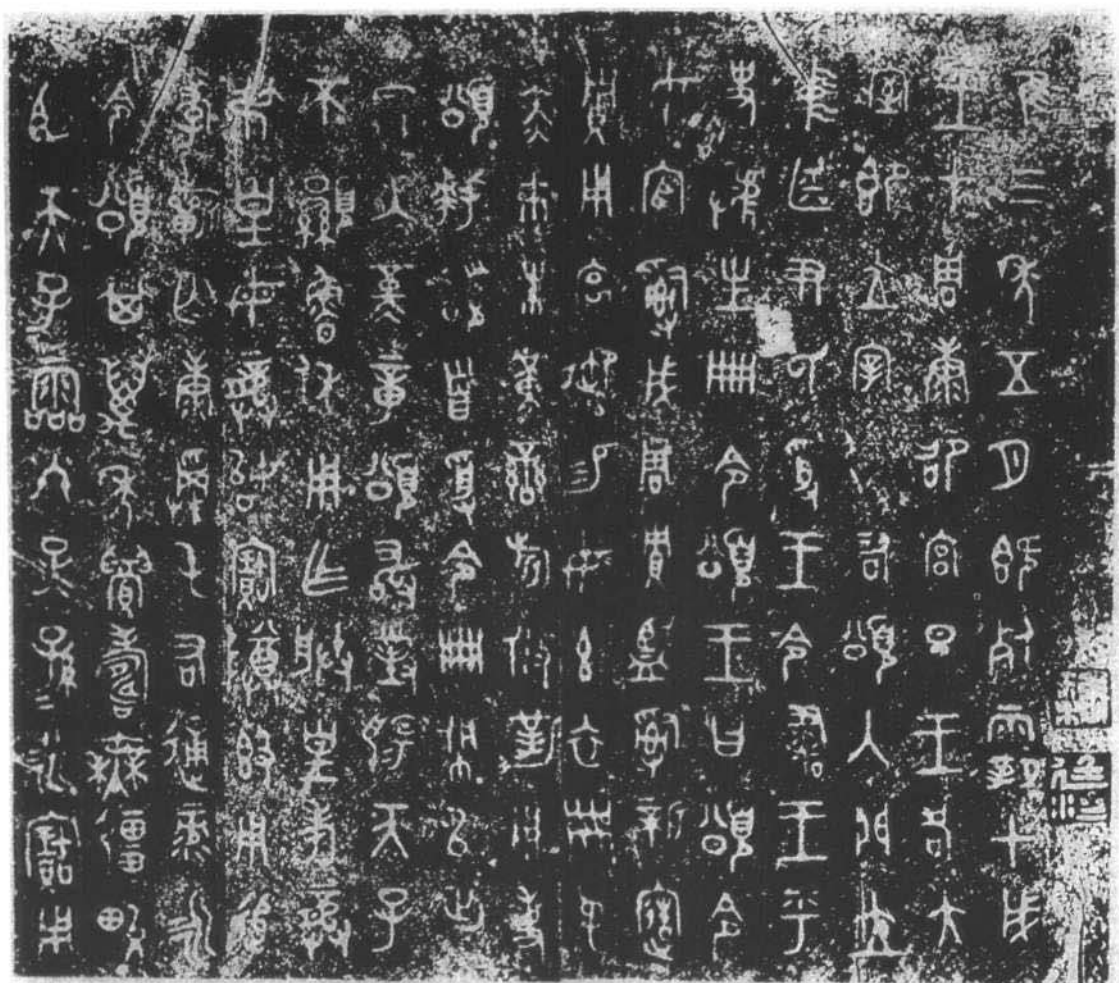 隹三年五月既死霸甲戌
王才周康卲宮旦王各大
室即立宰引右頌入門立
中廷尹氏受王令書王乎
史虢生冊令頌王曰頌令
女官𤔲成周貯監𤔲新造
貯用宮御易女玄衣黹屯
赤巿朱黃䜌旂攸勒用事
頌拜𩒨首受令冊佩以出
反入堇章頌敢對揚天子
不顯魯休用乍朕皇考龏
弔皇母龏始寶尊𣪘用追
孝祈匄康屯右通彔永
令頌其萬年眉壽無疆畯
臣天子霝冬子孫永寶用